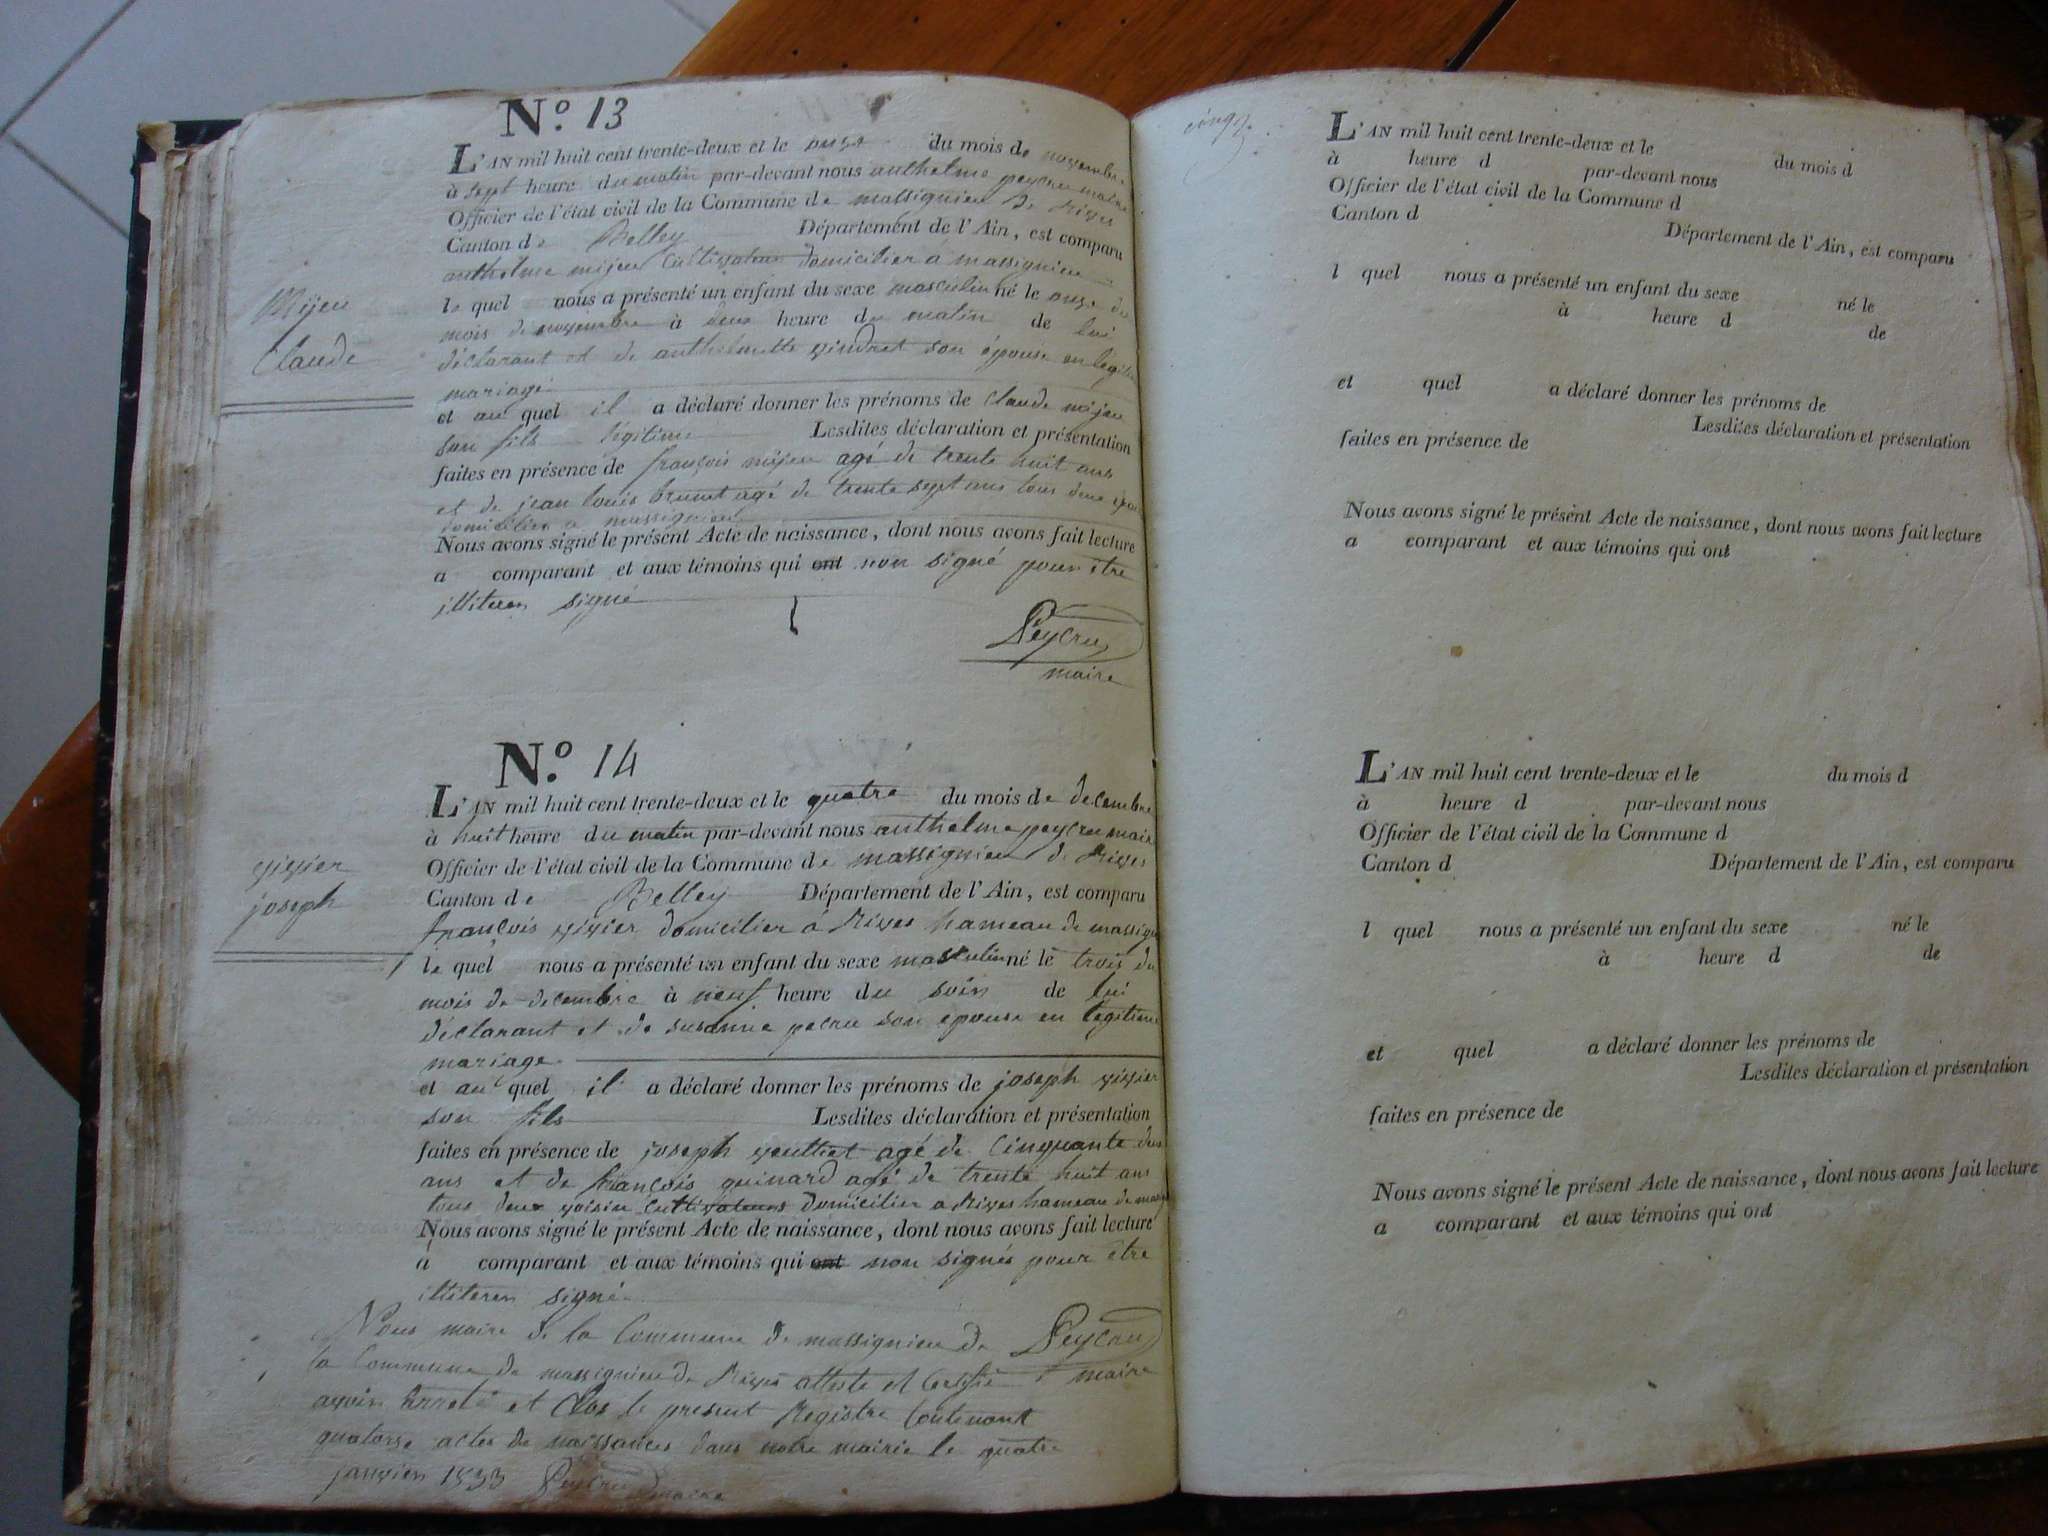 N.º 13
L'AN mil huit cent trente-deux et le onze du mois de novembre
à sept heure du matin par-devant nous anthelme peycru maire
Officier de l'état civil de la Commune de massignieu de Rives
Canton de Belley Département de l'Ain, est comparu
anthelme mijeu cultivateur domicilier à massignieu
le quel nous a présenté un enfant du sexe masculin né le onze du
mois de novembre à deux heure du matin de lui
déclarant et de anthelmette vindret son épouse en légitime
mariage
et au quel il a déclaré donner les prénoms de Claude mijeu
son fils légitime Lesdites déclaration et présentation
faites en présence de françois mijeu agé de trente huit ans
et de jean louis brunet agé de trente sept ans tous deux
domicilier a massignieu
Nous avons signé le présent Acte de naissance, dont nous avons fait lecture
a comparant et aux témoins qui ont non signé pour être
illiteren signé
Peycru
maire
Mijeu
Claude
N.º 14
L'AN mil huit cent trente-deux et le quatre du mois de decembre
à huit heure du matin par-devant nous anthelme peycru maire
Officier de l'état civil de la Commune de massignieu de Rives
Canton de Belley Département de l'Ain, est comparu
françois vivier domicilier á Rives hameau de massign
le quel nous a présenté un enfant du sexe masculin né le trois du
mois de decembre à neuf heure du soir de lui
déclarant et de susanne pecru son épouse en legitime
mariage
et au quel il a déclaré donner les prénoms de joseph vivier
son fils Lesdites déclaration et présentation
faites en présence de joseph agé de Cinquante deux
ans et de françois guinard agé de trente huit ans
tous deux voisin Cultivateurs domicilier a Rives hameau de
Nous avons signé le présent Acte de naissance, dont nous avons fait lecture
á comparant et aux témoins qui ont non signés pour être
illiteren signé
vivier
joseph
Nous maire de la Commune de massignieu de
la Commune de massignieu de Rives atteste et Certifie
avoir Arreté et Clos le present Registre Contenant
quatorse actes de naissances dans notre mairie le quatre
janvier 1833 Peycru maire
Peycru
maire
L'AN mil huit cent trente-deux et le du mois d
à heure d par-devant nous
Officier de l'état civil de la Commune d
Canton d Département de l'Ain, est comparu
l quel nous a présenté un enfant du sexe né le
à heure d de
et quel a déclaré donner les prénoms de
Lesdites déclaration et présentation
faites en présence de
Nous avons signé le présent Acte de naissance, dont nous avons fait lecture
a comparant et aux témoins qui ont
L'AN mil huit cent trente-deux et le du mois d
à heure d par-devant nous
Officier de l'état civil de la Commune d
Canton d Département de l'Ain, est comparu
l quel nous a présenté un enfant du sexe né le
à heure d de
et quel a déclaré donner les prénoms de
Lesdites déclaration et présentation
faites en présence de
Nous avons signé le présent Acte de naissance, dont nous avons fait lecture
a comparant et aux témoins qui ont